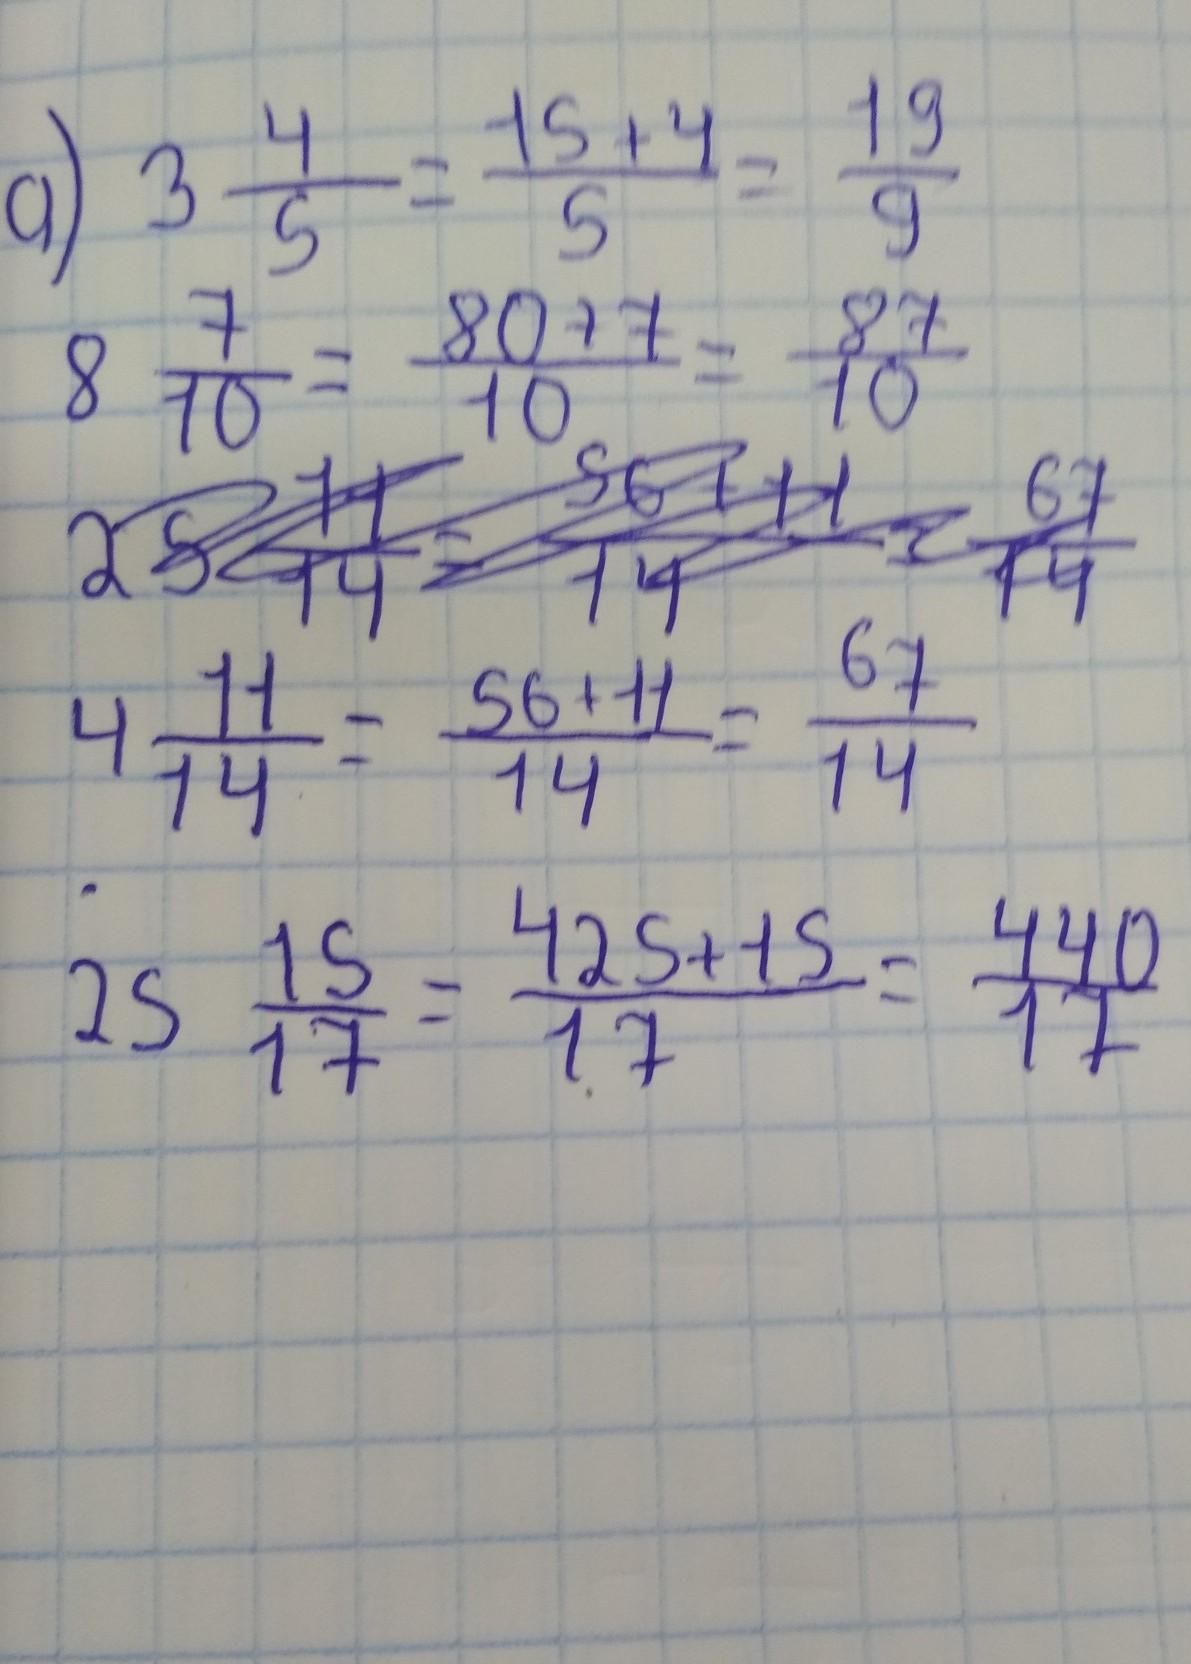 а) 3 4/5 = 15+4/5 = 19/9
8 7/10 = 80+7/10 = 87/10
25 11/14 = 56+11/14 = 67/14
4 11/14 = 56+11/14 = 67/14
25 15/17 = 425+15/17 = 440/17